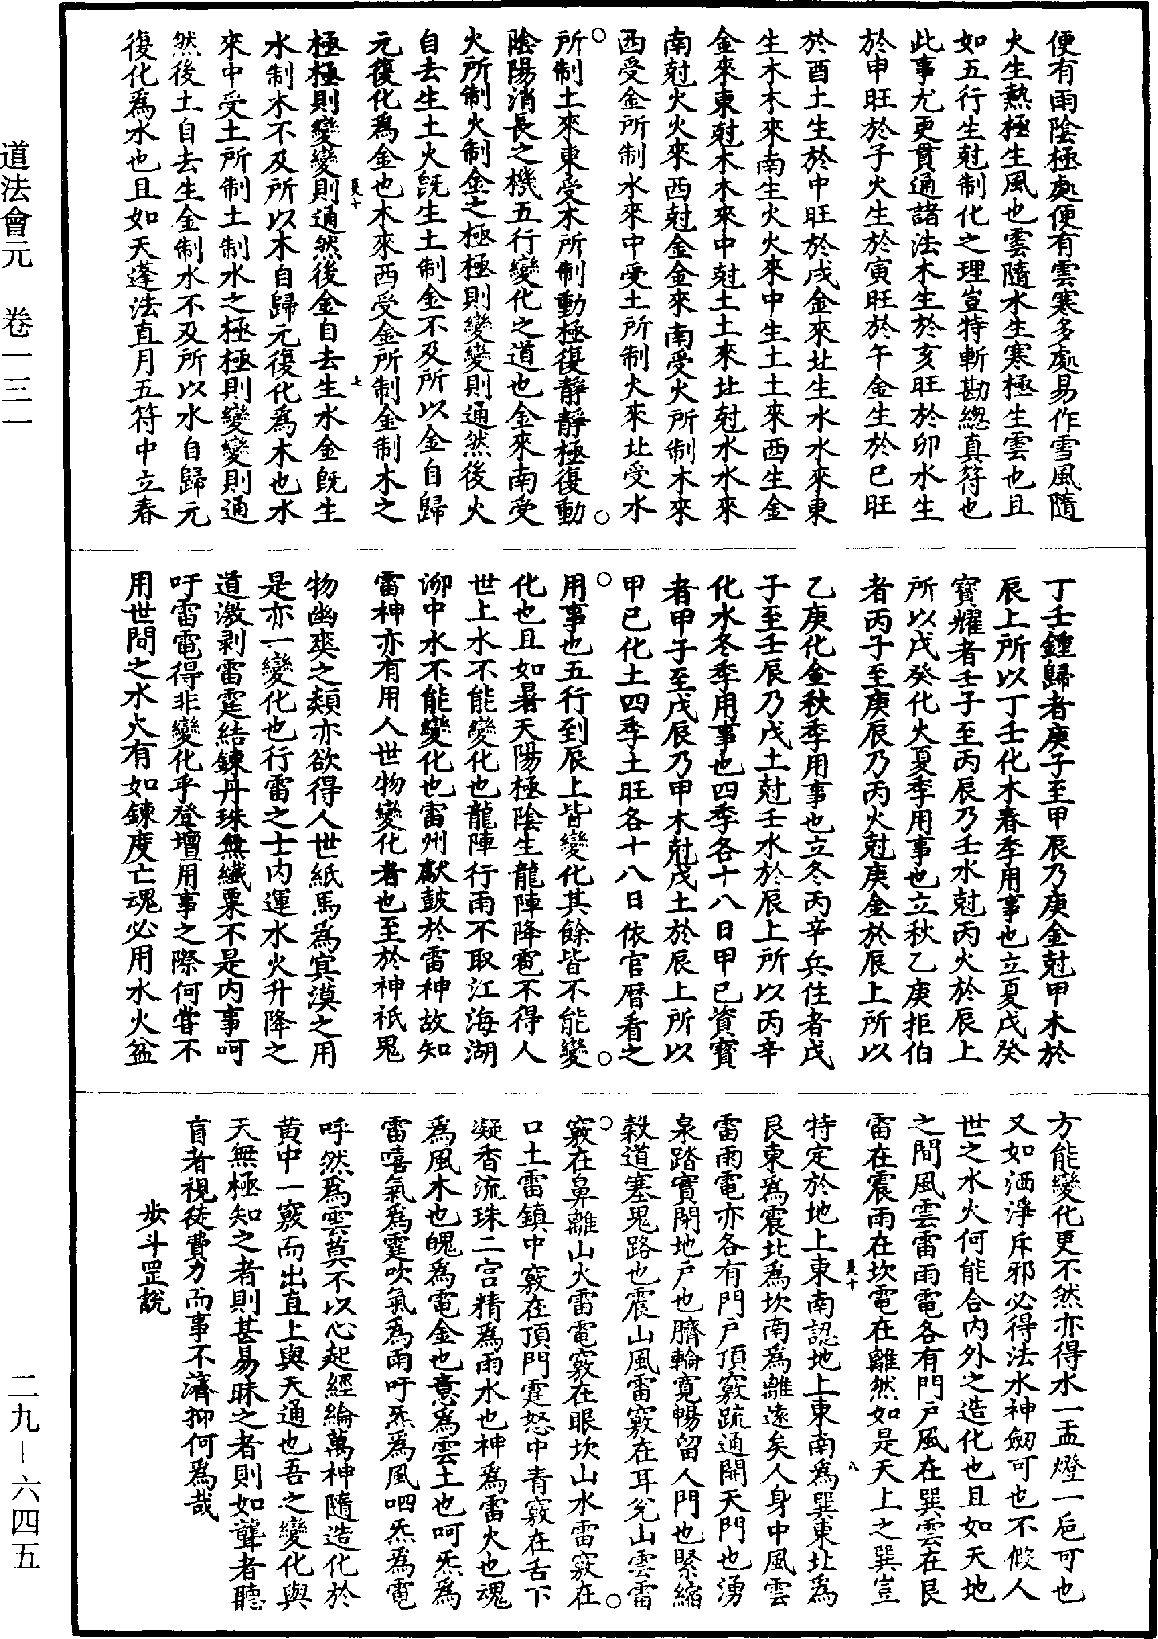 道法會元　卷一三一
便有雨陰極處便有雲寒多處易作雪風隨
火生熱極生風也雲隨水生寒極生雲也且
如五行生尅制化之理豈特斬勘總真符也
此事尤更貫通諸法木生於亥旺於卯水生
於申旺於子火生於寅旺於午金生於巳旺
於酉土生於中旺於戌金來北生水水來東
生木木來南生火火來中生土土來西生金
金來東尅木木來中尅土土來北尅水水來
南尅火火來西尅金金來南受火所制木來
西受金所制水來中受土所制火來北受水
所制土來東受木所制動極復靜靜極復動
陰陽消長之機五行變化之道也金來南受
火所制火制金之極極則變變則通然後火
自去生土火既生土制金不及所以金自歸
元復化為金也木來西受金所制金制木之
極極則變變則通然後金自去生水金既生
水制木不及所以木自歸元復化為木也水
來中受土所制土制水之極極則變變則通
然後土自去生金制水不及所以水自歸元
復化為水也且如天蓬法直月五符中立春
丁壬鍾歸者庚子至甲辰乃庚金尅甲木於
辰上所以丁壬化木春季用事也立夏戊癸
寶耀者壬子至丙辰乃壬水尅丙火於辰上
所以戊癸化火夏季用事也立秋乙庚拒伯
者丙子至庚辰乃丙火尅庚金於辰上所以
乙庚化金秋季用事也立冬丙辛兵住者戊
子至壬辰乃戊土尅壬水於辰上所以丙辛
化水冬季用事也四季各十八日甲己資寶
者甲子至戊辰乃甲木尅戊土於辰上所以
甲己化土四季土旺各十八日依官曆看之
用事也五行到辰上皆變化其餘皆不能變
化也且如暑天陽極陰生龍陣降雹不得人
世上水不能變化也龍陣行雨不取江海湖
泖中水不能變化也雷州獻鼓於雷神故知
雷神亦有用人世物變化者也至於神祇鬼
物幽爽之類亦欲得人世紙馬為冥漠之用
是亦一變化也行雷之士內運水火升降之
道激剥雷霆結鍊丹珠無纖粟不是內事呵
吁雷電得非變化乎登壇用事之際何嘗不
用世間之水火有如鍊度亡魂必用水火盆
方能變化更不然亦得水一盂燈一巵可也
又如洒淨斥邪必得法水神劒可也不假人
世之水火何能合內外之造化也且如天地
之間風雲雷雨電各有門戶風在巽雲在艮
雷在震雨在坎電在離然如是天上之巽豈
特定於地上東南認地上東南為巽東北為
艮東為震北為坎南為離遠矣人身中風雲
雷雨電亦各有門戶頂竅疏通開天門也湧
泉踏實閉地戶也臍輪寬暢留人門也緊縮
穀道塞鬼路也震山風雷竅在耳兌山雲雷
竅在鼻離山火雷電竅在眼坎山水雷竅在
口土雷鎮中竅在頂門霆怒中青竅在舌下
凝香流珠二宮精為雨水也神為雷火也魂
為風木也魄為電金也意為雲土也呵炁為
雷嘻氣為霆吹氣為雨吁炁為風呬炁為電
呼然為雲莫不以心起經綸萬神隨造化於
黃中一竅而出直上與天通也吾之變化與
天無極知之者則甚易昧之者則如聾者聽
盲者視徒費力而事不濟抑何為哉
步斗罡說
二九－六四五